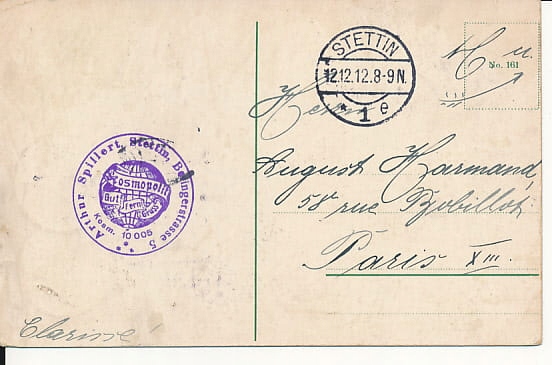 STETTIN
12.12.12.8-9N.
* 1 e
No. 161
Herrn
August Harmand,
58 rue Bobillot
Paris XIII.
Arthur Spillert, Stettin, Bellingerstrasse 5
Kosmopolit
Gut Fern Gruss
Kosm. 10005
Clarisse